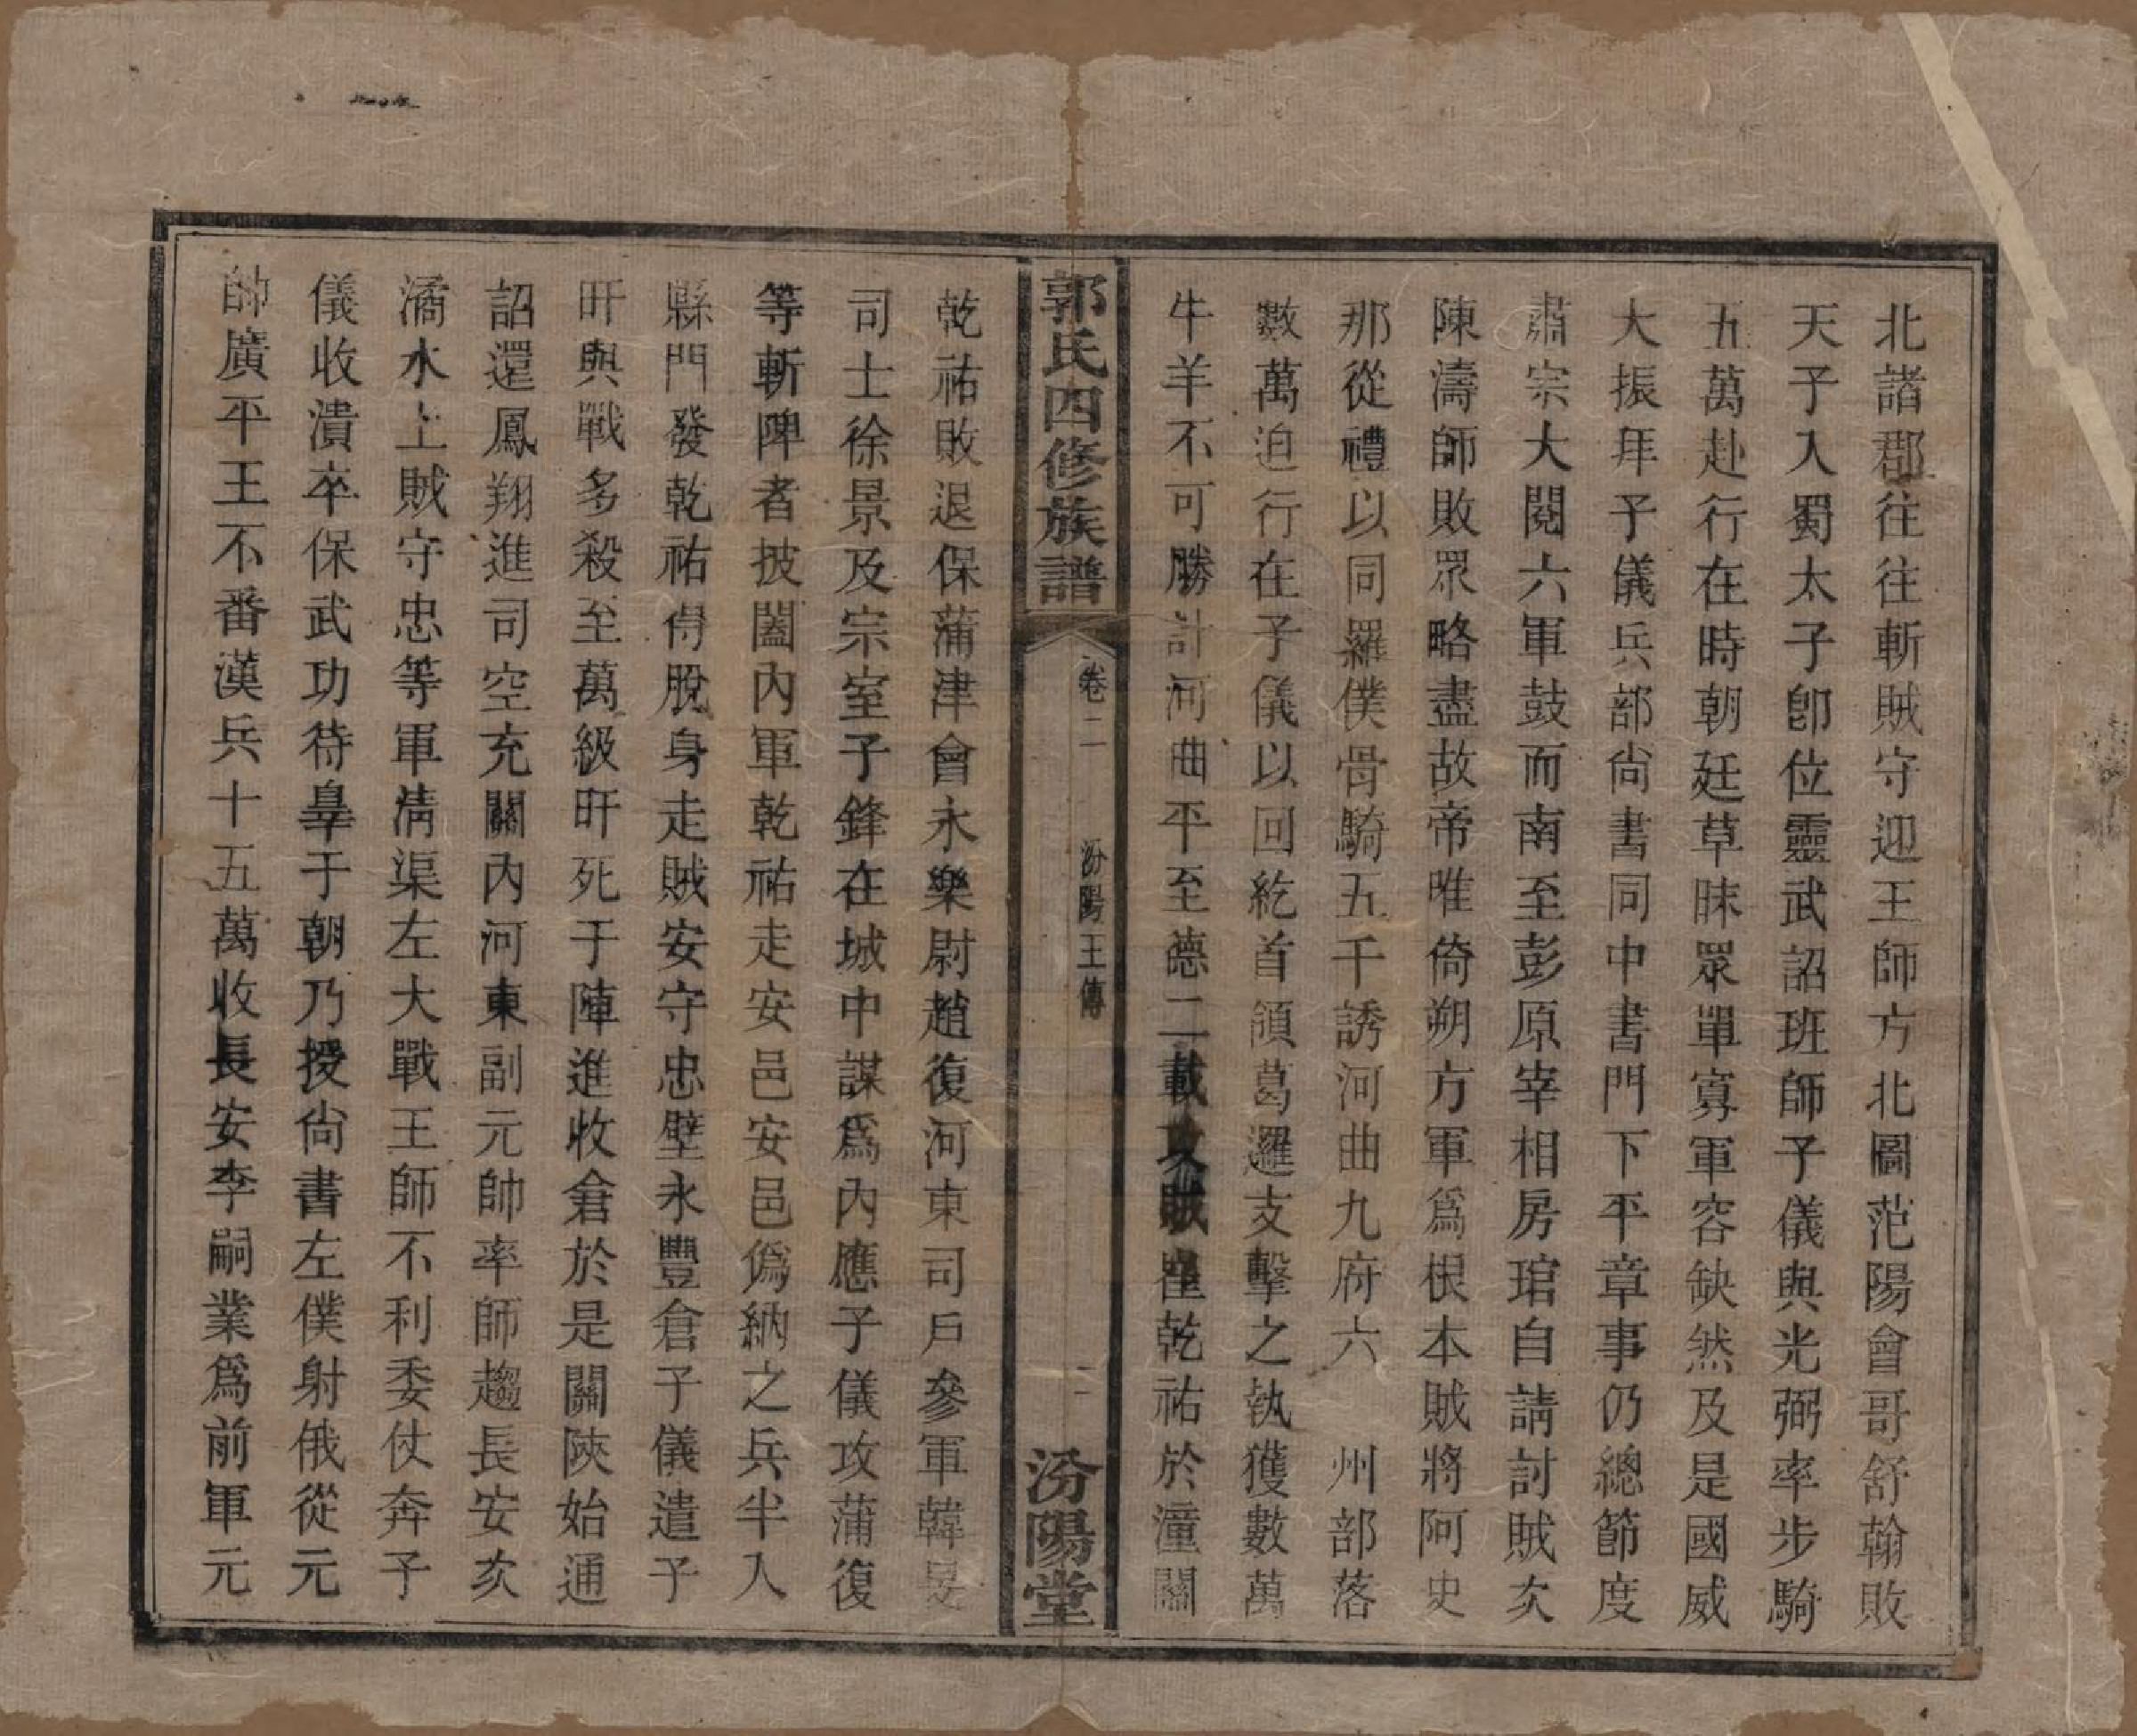 北諸郡往往斬賊守迎王師方北圖范陽會哥舒翰敗
天子入蜀太子卽位靈武詔班師子儀與光弼率步騎
五萬赴行在時朝廷草昧眾單寡軍容缺然及是國威
大振拜子儀兵部尙書同中書門下平章事仍總節度
肅宗大閱六軍鼓而南至彭原宰相房琯自請討賊次
陳濤師敗眾略盡故帝唯倚朔方軍爲根本賊將阿史
那從禮以同羅僕骨騎五千誘河曲九府六　州部落
數萬迫行在子儀以回紇首領葛邏支擊之執獲數萬
牛羊不可勝計河曲平至德二載攻賊崔乾祐於潼關
郭氏四修族譜
卷二
汾陽王傳
二
汾陽堂
乾祐敗退保蒲津會永樂尉趙復河東司戶參軍韓旻
司士徐景及宗室子鋒在城中謀爲內應子儀攻蒲復
等斬陴者披闔內軍乾祐走安邑安邑僞納之兵半入
縣門發乾祐得脫身走賊安守忠壁永豐倉子儀遣子
旰與戰多殺至萬級旰死于陣進收倉於是關陝始通
詔還鳳翔進司空充關內河東副元帥率師趨長安次
潏水上賊守忠等軍淸渠左大戰王師不利委仗奔子
儀收潰卒保武功待辠于朝乃授尙書左僕射俄從元
帥廣平王不番漢兵十五萬收長安李嗣業爲前軍元